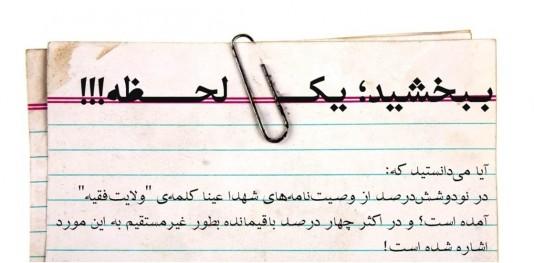 ببخشید، یک لحظه!!!
آیا می‌دانستید که:
در نودوشش‌درصد از وصیت‌نامه‌های شهدا عینا کلمه‌ی "ولایت‌فقیه"
آمده است؟ و در اکثر چهار درصد باقیمانده بطور غیرمستقیم به این مورد
اشاره شده است!